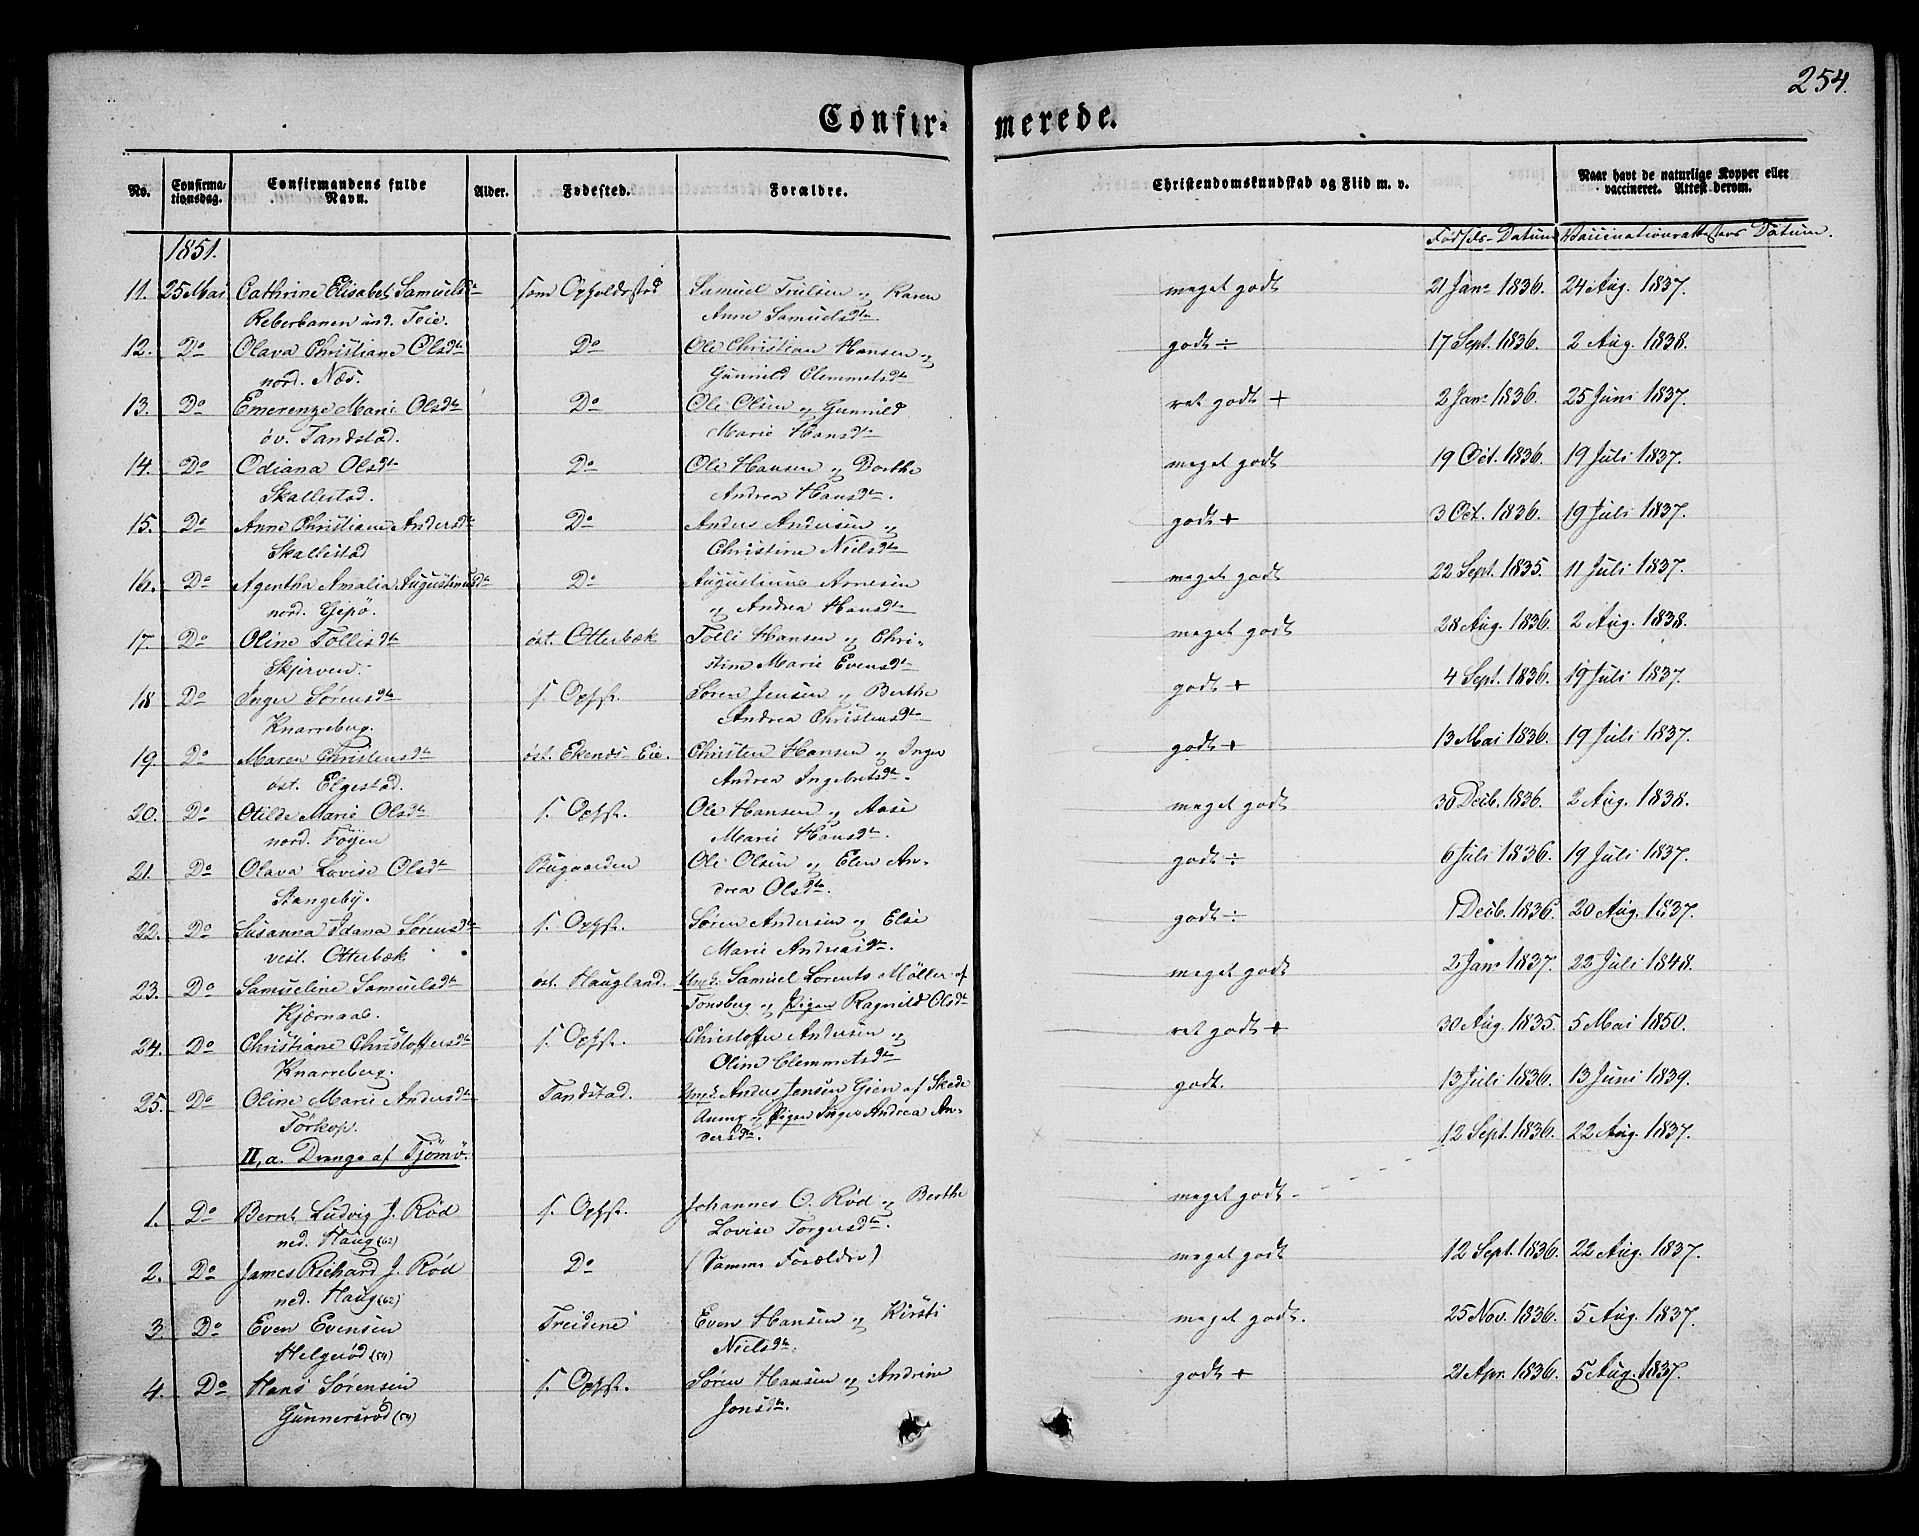 254.
Confir-
merede.
No.
Confirma-
tionsdag.
Confirmandens fulde
Navn.
Alder.
Fødested.
Forældre.
Christendomskundskab og Flid m. v.
Naar havt de naturlige Kopper eller
vaccineret. Attest derom.
1851.
Fødsels-Datum Vaccinationsattestens Datum.
11. 25 Mai Cathrine Elisabet Samuelsdtr som Opholdssted Samuel Trulsen og Karen meget godt 21 Janr 1836. 24 Aug. 1837.
Reberbanen und. Teie. Anne Samuelsdtr
12. Do Olava Christiane Olsdtr Do Ole Christian Hansen og godt ÷ 17 Sept. 1836. 2 Aug. 1838.
nord. Næs. Gunnild Clemmetsdtr
13. Do Emerenze Marie Olsdtr Do Ole Olsen og Gunnild ret godt + 2 Janr 1836. 25 Juni 1837.
øv. Tandstad. Marie Hansdtr
14. Do Odiana Olsdtr Do Ole Hansen og Dorthe meget godt 19 Oct. 1836. 19 Juli 1837.
Skallestad. Andrea Hansdtr.
15. Do Anne Christiane Andersdtr Do Anders Andersen og godt + 3 Oct. 1836. 19 Juli 1837.
Skallestad Christine Nielsdtr
16. Do Agentha Amalia Augustinusdtr Do Augustinus Arnesen meget godt 22 Sept. 1835. 11 Juli 1837.
nord. Gjepø. og Andrea Hansdtr
17. Do Oline Tollisdtr øst. Otterbæk Tolli Hansen og Chri- meget godt 28 Aug. 1836. 2 Aug. 1838.
Skjerven. stine Marie Evensdtr
18 Do Inger Sørensdtr s. Ophst. Søren Jensen og Berthe godt + 4 Sept. 1836. 19 Juli 1837.
Knarreberg. Andrea Christensdtr
19. Do Maren Christensdtr øst. Ekenæs Eie. Christen Hansen og Inger godt + 13 Mai 1836. 19 Juli 1837.
øst. Elgestad. Andrea Ingebretsdtr.
20. Do Otilde Marie Olsdtr s. Ophst. Ole Hansen og Aase meget godt 30 Decb. 1836. 2 Aug. 1838.
nord. Føyen Marie Hansdtr.
21. Do Olava Lovise Olsdtr Bugaarden Ole Olsen og Elen An- godt ÷ 6 Juli 1836. 19 Juli 1837.
Stangeby. drea Olsdtr.
22. Do Susanna Idana Sørensdtr s. Ophst. Søren Andersen og Else godt ÷ 1 Decb. 1836. 20 Aug. 1837.
vest. Otterbæk Marie Andreasdtr.
23. Do Samueline Samuelsdtr øst. Haugland. Ungk. Samuel Lorents Möller af meget godt 2 Janr 1837. 22 Juli 1848.
Kjærnaas. Tønsberg og Pigen Ragnild Olsdtr
24. Do Christiane Christoffersdtr s. Ophst. Christoffer Andersen og ret godt + 30 Aug. 1835. 5 Mai 1850.
Knarreberg. Oline Clemmetsdtr
25. Do Oline Marie Andersdtr Tandstad. Ungk. Anders Jensen Gien af Skede godt. 13 Juli 1836. 13 Juni 1839.
Torkop. og Pigen Inger Andrea An-
dersdtr.
12 Sept. 1836. 22 Aug. 1837.
II, a. Drenge af Tjømø.
1. Do Bernt Ludvig J. Rød s. Ophst. Johannes O. Rød og Berthe meget godt
ned. Haug (62) Lovise Torgersdtr.
2. Do James Richard J. Rød Do (Samme Forældre) meget godt 12 Sept. 1836. 22 Aug. 1837.
ned. Haug (62)
3 Do Even Evensen Treidene Even Hansen og Kirsti meget godt. 25 Nov. 1836. 5 Aug. 1837.
Helgerød (54) Nielsdtr.
4. Do Hans Sørensen s. Ophst. Søren Hansen og Andrine godt + 21 Apr. 1836. 5 Aug. 1837.
Gunnersrød (54) Jonsdtr.